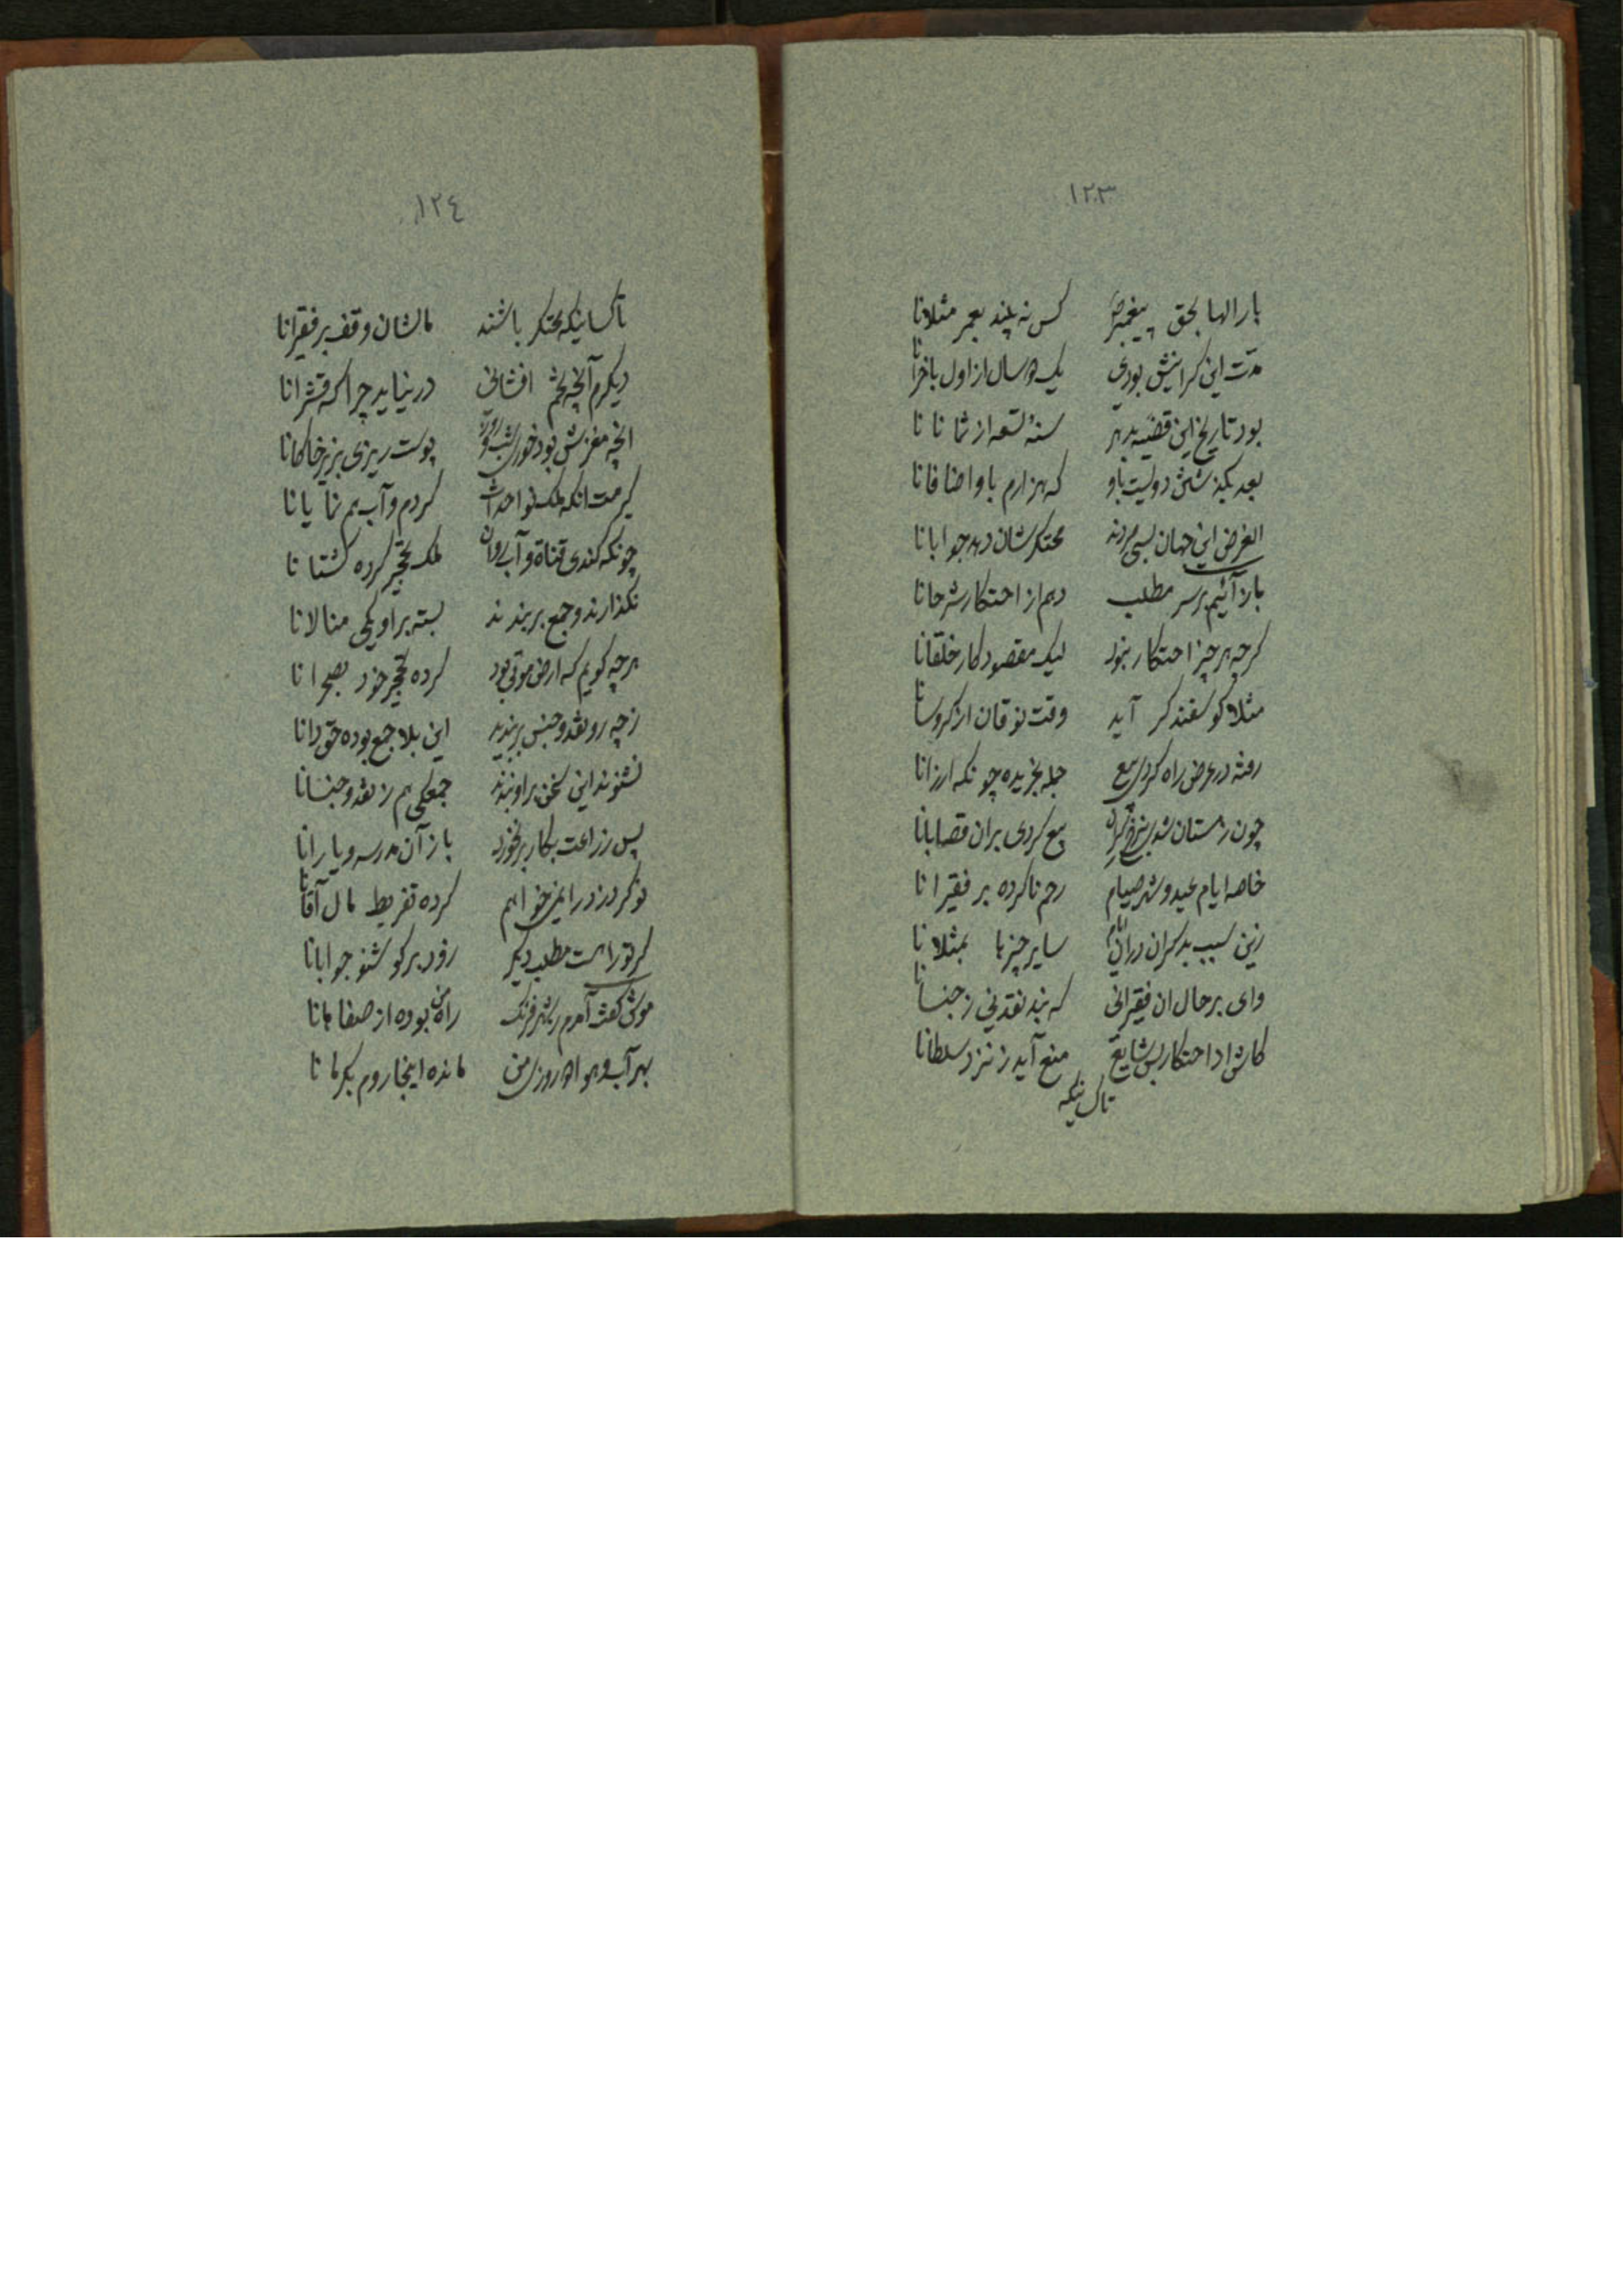 ١٢٣
بارالها بحق پیغمبر کس نه بیند بعمر مثلانا
مدت این کرانیش بودی یک سال از اول باخرانا
بود تاریخ این قضیه بدهر سنهٔ تسعه از ثمانانا
بعد بگذشتن دویست باو که هزارم باو اضافانا
الغرض این جهان بسی مردند محتکرشان دهد جوابانا
باز آئیم بر سر مطلب دهم از احتکار شرحانا
کرچه هر چیز احتکار نبود لیک مقصود کار خلقانا
مثلا کوسفند کر آید وقت نوقان از کروسانا
رفته در عرض راه کردی بیع جمله بخریده چونکه ارزانا
چون زمستان شد بیع کردی بران قصابانا
خاصه ایام عید و شهر صیام رحم ناکرده بر فقیرانا
زین سبب بد کران در ان ایام سایر چیزها بمثلانا
وای بر حال ان فقیرانی که نبد نقد نی ز جنسانا
کاش از احتکار بس شایع منع آید ز نزد سلطانا
تاکسانیکه
١٢٤
تاکسانیکه محتکر باشند مالشان وقف بر فقیرانا
دیکرم آنچه تخم افشانی در نیاید چرا که قشرانا
انچه مغزش بود خوری شب و روز پوست ریزی بزیر خاکانا
کیرمت انکه ملک نو احداث کردم و آب هم نمایانا
چونکه کندی قناة و آب روان ملک تحجیر کرده کشتانا
نکذارند و جمع بربندند بسته براو یکی منالانا
هرچه کویم که ارض موتی بود کرده تحجیر خود بصحرانا
زچه رو نقد و جنس بربندید این بلا جمع بوده حق دانا
نشنوند این سخن براو بندند جمعکی هم ز نقد و جنسانا
پس زراعت بکار برنخورد باز آن مدرسه و یارانا
نوکر دزد را نمیخواهم کرده تفریط مال آقانا
کر تو راهست مطلب دیکر زود برکو شنو جوابانا
موش کفت آمدم ز شهر فرنک راه من بوده از صفاهانا
بهر آب و هوا روزی من مانده اینجا روم بکرمانا